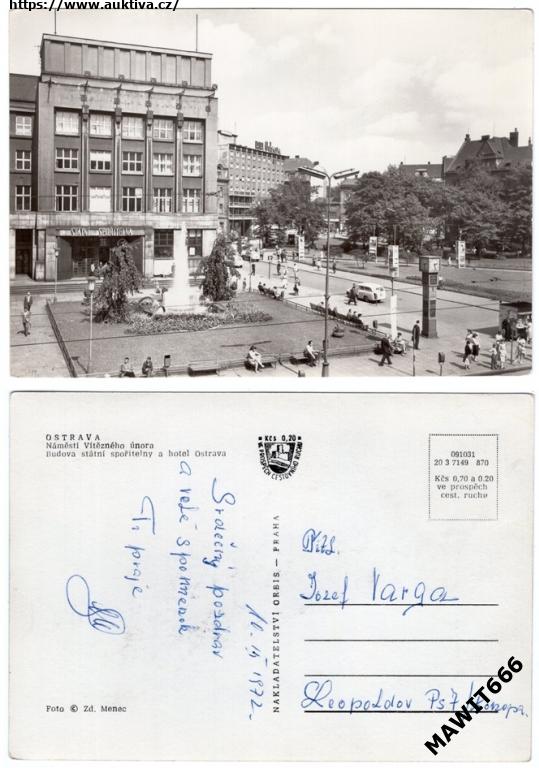 https://www.auktiva.cz/
STÁTNÍ SPOŘITELNA
OSTRAVA
Náměstí Vítězného února
Budova státní spořitelny a hotel Ostrava
Kčs 0,20
VE PROSPĚCH CESTOVNÍHO RUCHU
091031
20 3 7149 870
Kčs 0,70 a 0.20
ve prospěch
cest. ruchu
Srdečný pozdrav
a veľa spomienok
Ti praje
1972.
NAKLADATELSTVÍ ORBIS — PRAHA
Vít.
Jozef Varga
Leopoldov
Foto © Zd. Menec
MAWIT666